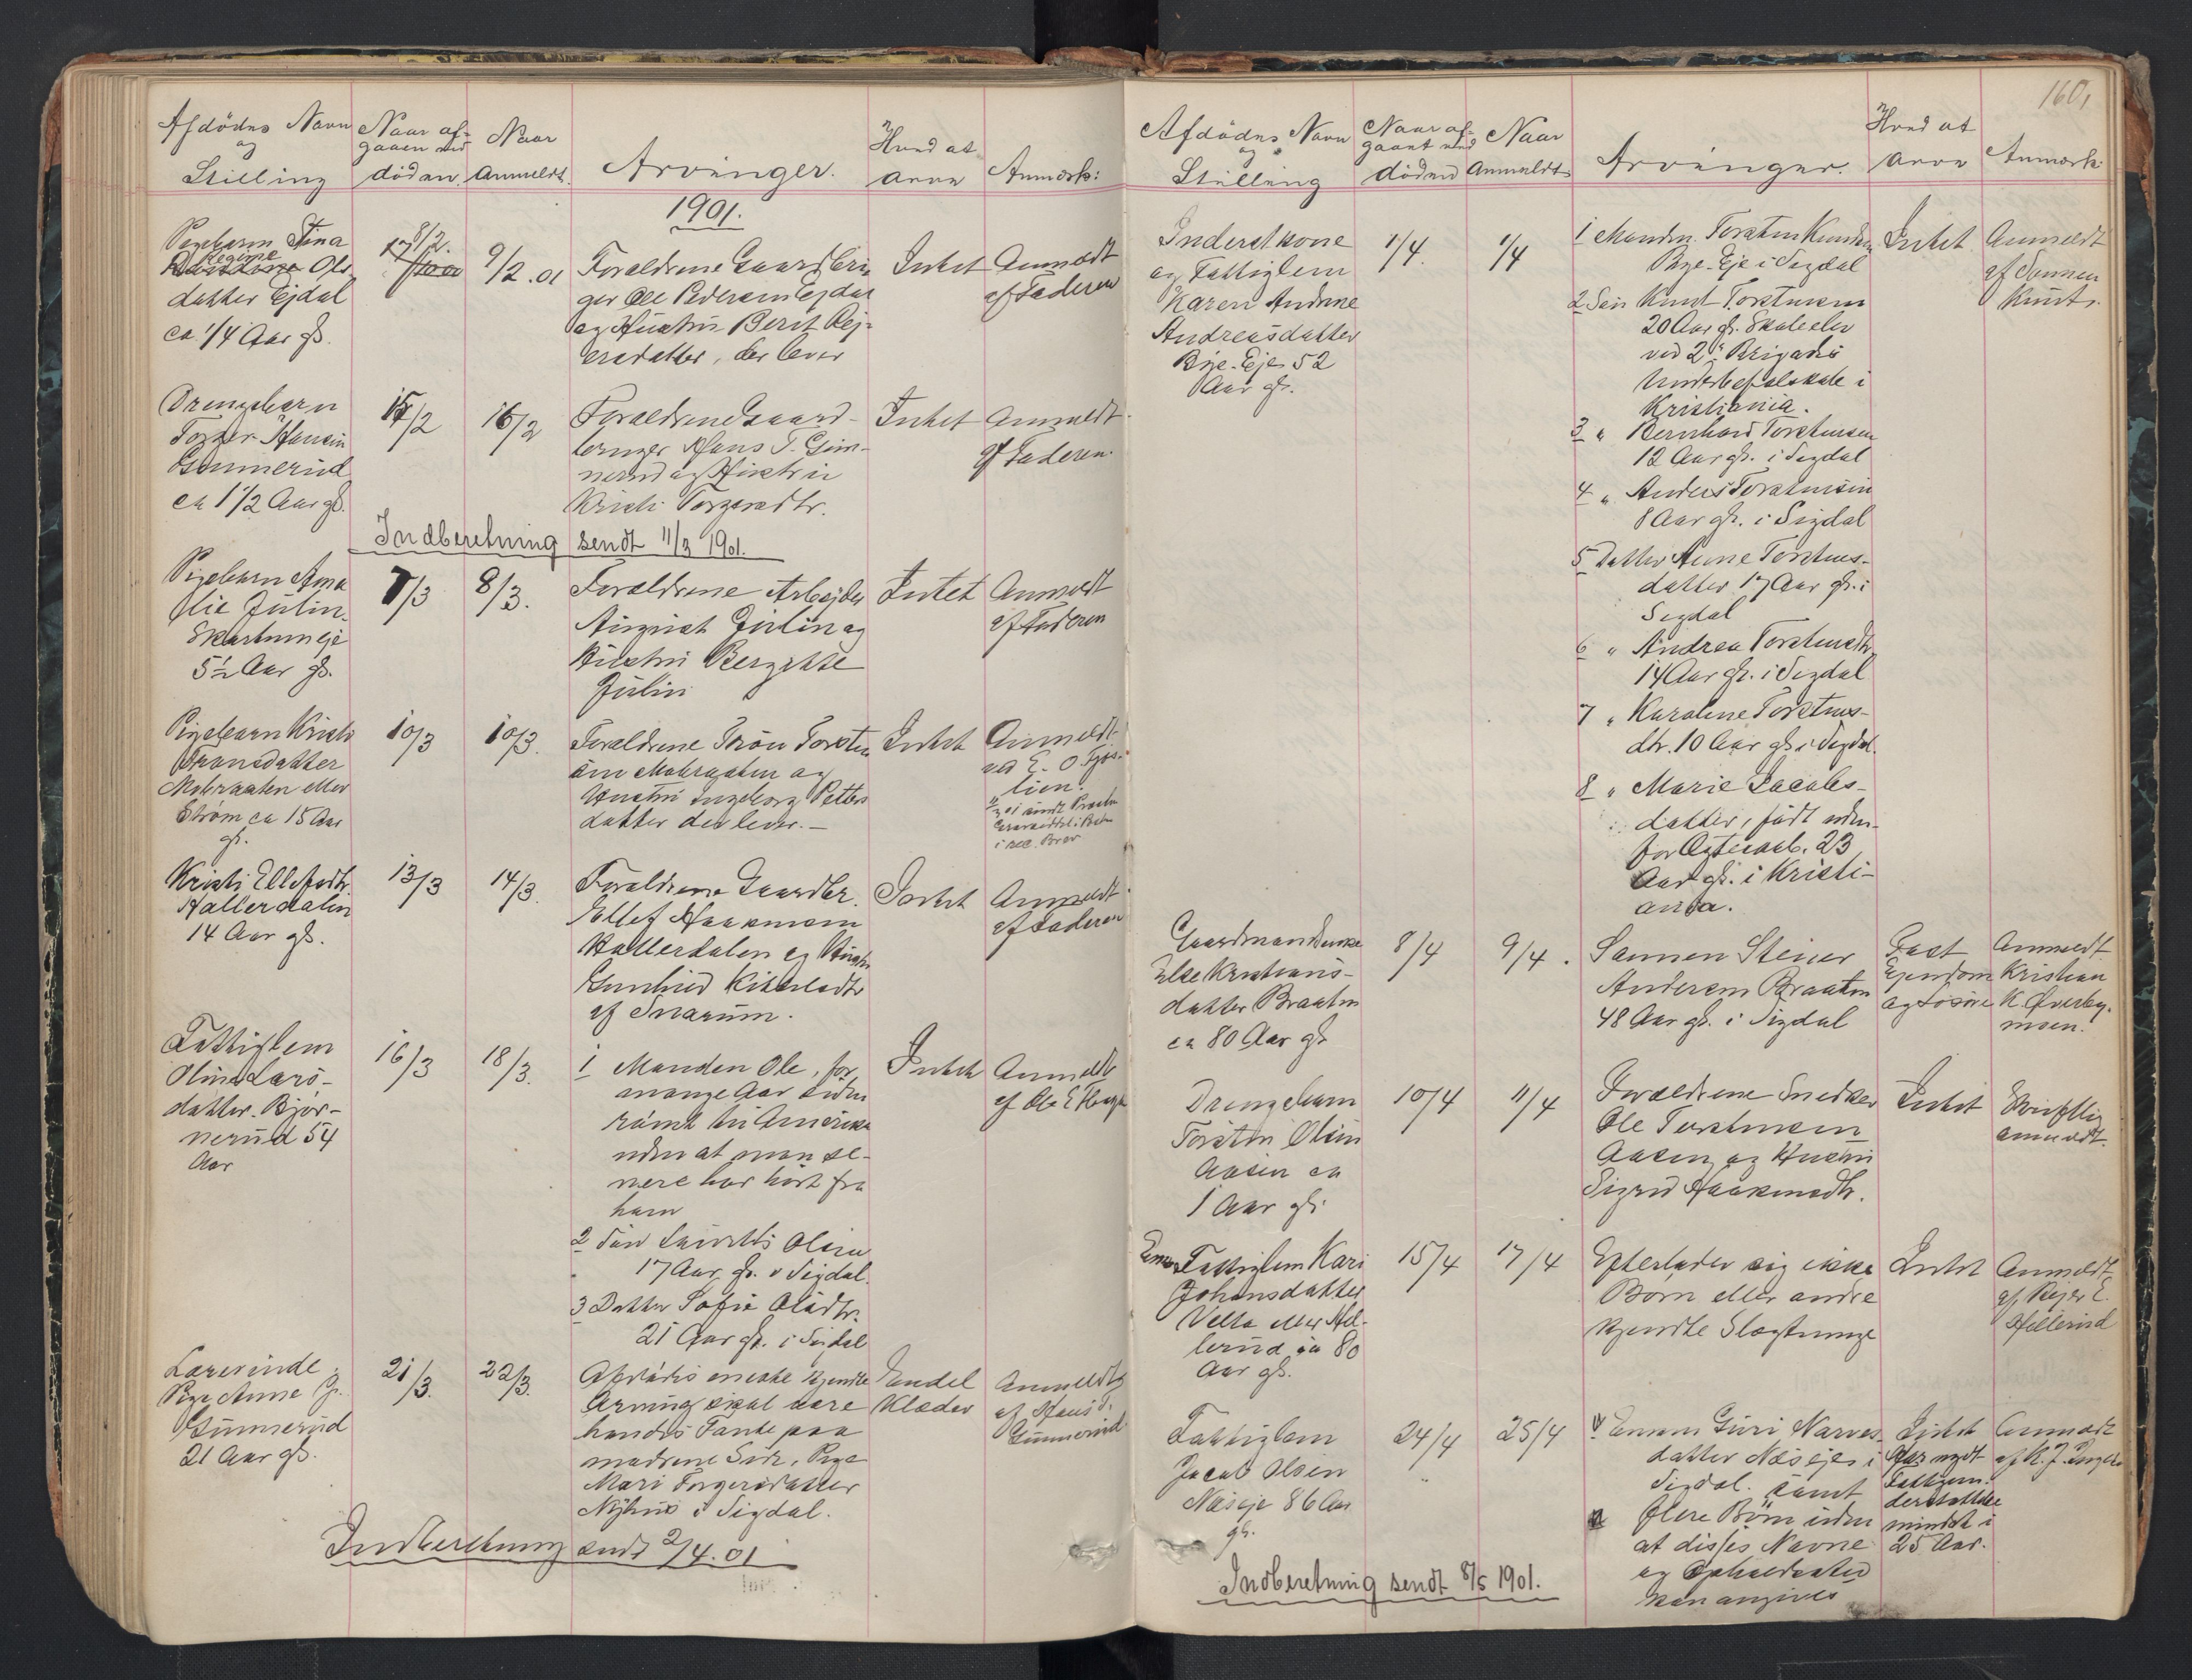 Afdødes Navn
og
Stilling
Naar af-
gaaen ved
døden.
Naar
Anmeldt.
Arvinger.
Hvad at
arve
Anmærk:
1901.
Pigebarn Stina
Regine Ols-
datter Ejdal
ca 1/4 Aar gl.
8/2.
9/2.01
Forældrene Gaardbru-
ger Ole Pedersen Ejdal
og Hustru Berit Rej-
ersdatter, der lever
Intet
Anmeldt
af Faderen
Drengebarn
Torger Hansen
Gunnerud
ca 1 1/2 Aar gl.
15/2
16/2
Forældrene Gaard-
bruger Hans T. Gun-
nerud og Hustru
Kristi Torgersdtr.
Intet
Anmeldt
af Faderen.
Indberetning sendt 11/3 1901.
Pigebarn Ama-
lie Julin.
Skartumeje
5 1/2 Aar gl.
7/3
8/3.
Forældrene Arbejder
August Julin og
Hustru Bergitte
Julin
Intet
Anmeldt
af Faderen
Pigebarn Kristi
Tronsdatter
Mobraaten eller
Strøm ca 15 Aar
gl.
10/3
10/3.
Forældrene Tron Torsten-
sen Mobraaten og
Hustru Ingeborg Petters-
datter der lever.—
Intet
Anmeldt
ved E. O. Fjøs-
lien.
i rec. Brev
Kristi Ellefsdtr.
Hallerdalen
14 Aar gl.
13/3
14/3.
Forældrene Gaardbr.
Ellef Haakonsen
Hallerdalen og Hustru
Gunhild
af Snarum.
Intet
Anmeldt
af Faderen
Fattiglem
Olina Lars-
datter. Bjør-
nerud 54
Aar
16/3
18/3.
1 Manden Ole, for
mange Aar siden
rømt til Amerika
uden at man se-
nere har hørt fra
ham
2 Søn Lauritz Olsen
17 Aar gl. i Sigdal.
3 Datter Sofie Olsdtr.
21 Aar gl. i Sigdal
Intet
Anmeldt
af Ole E.
Lærerinde
Pige Anne
Gunnerud
21 Aar gl.
21/3.
22/3.
Afdødes eneste kjendte
Arving skal være
hendes Tante paa
mødrene Side, Pige
Mari Torgersdatter
Nyhus i Sigdal.
Endel
Klæder
Anmeldt
af Hans T.
Gunnerud
Indberetning sendt 2/4.01
160,
Afdødes Navn
og
Stilling
Naar af-
gaaet ved
døden
Naar
Anmeldt
Arvinger.
Hvad at
arve
Anmærk.
Inderstkone
og Fattiglem
Karen Andrine
Andreasdatter
Bye-Eje 52
Aar gl.
1/4.
1/4
1 Manden Torsten Knudsen
Bye-Eje i Sigdal
2 Søn Knut Torstensen
20 Aar gl. Skoleelev
ved 2den Brigades
Underbefalsskole i
Kristiania.
3 " Bernhard Torstensen
12 Aar gl. i Sigdal
4 " Anders Torstensen
8 Aar gl. i Sigdal
5 Datter Anne Torstens-
datter 17 Aar gl. i
Sigdal
6 " Andrea Torstensdtr.
14 Aar gl. i Sigdal
7 " Karoline Torstens-
dtr. 10 Aar gl. i Sigdal.
8 " Marie Jacobs-
datter, født uden-
for Ægteskab. 23
Aar gl. i Kristi-
ania.
Intet
Anmeldt
af Sønnen
Knut.
Gaardmandsenke
Else Kristians-
datter Braaten
ca 80 Aar gl.
8/4
9/4.
Sønnen Steiner
Andersen Braaten
48 Aar gl. i Sigdal
Fast
Ejendom
og Løsøre
Anmeldt
Kristian
K. Øverby-
moen.
Drengebarn
Torsten Olsen
Aasen ca
1 Aar gl.
10/4
11/4
Forældrene Snedker
Ole Torstensen
Aasen og Hustru
Sigrid Haakensdtr.
Intet
Skriftlig
anmeldt.
Fattiglem Kari
Johansdatter
Vella eller Hil-
lerud ca 80
Aar gl.
15/4
17/4
Efterlader sig ikke
Børn eller andre
kjendte Slægtninge
Intet
Anmeldt
af Rejer E.
Hillerud
Fattiglem
Jacob Olsen
Næseje 86 Aar
gl.
24/4
25/4
1 Enken Guri Narves-
datter Næseje i
Sigdal. samt
2 flere Børn uden
at disses Navne
og Opholdssted
kan angives
Intet
Har nydt
Fattigun-
derstøttelse
mindst i
25 Aar.
Anmeldt
Indberetning sendt 8/5 1901.